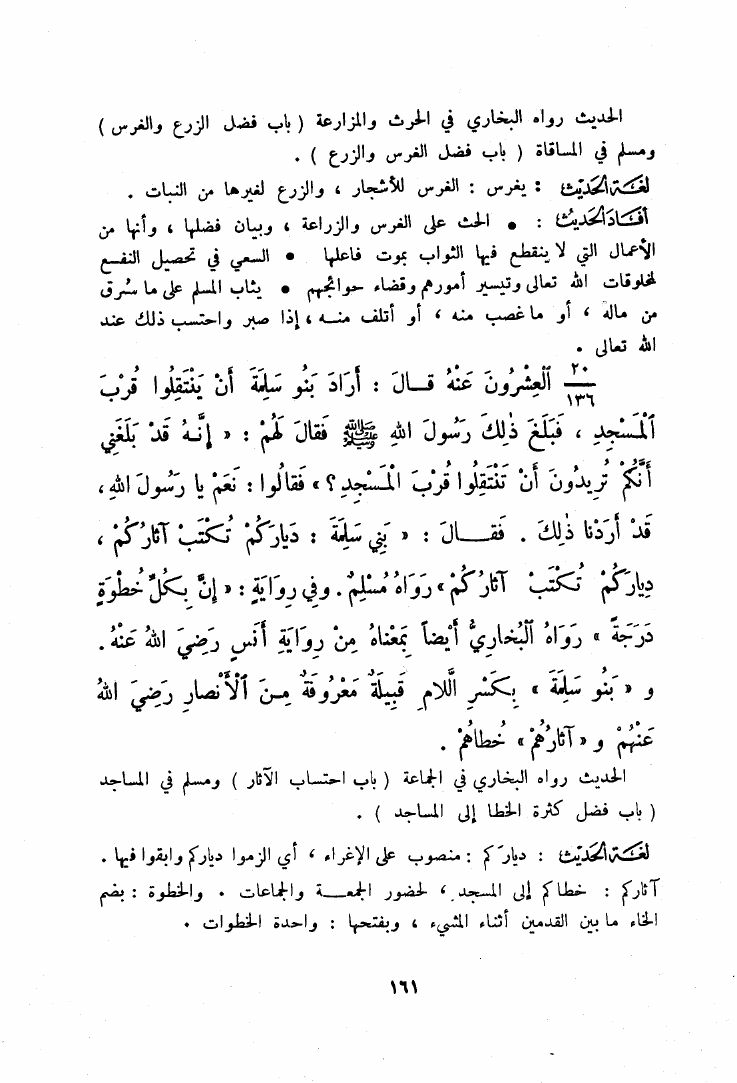 الحديث رواه البخاري في الحرث والمزارعة ( باب فضل الزرع والغرس )
ومسلم في المساقاة ( باب فضل الغرس والزرع ) .
لغـة الحديث : يغرس : الغرس للأشجار ، والزرع لغيرها من النبات .
أفـاد الحديث : • الحث على الغرس والزراعة ، وبيان فضلها ، وأنها من
الأعمال التي لا ينقطع فيها الثواب بموت فاعلها • السعي في تحصيل النفع
لمخلوقات الله تعالى وتيسير أمورهم وقضاء حوائجهم • يثاب المسلم على ما سُرق
من ماله ، أو ما غصب منه ، أو أتلف منه ، إذا صبر واحتسب ذلك عند
الله تعالى .
٢٠/١٣٦ اَلْعِشْرُونَ عَنْهُ قـالَ : أَرَادَ بَنُو سَلِمَةَ أَنْ يَنْتَقِلُوا قُرْبَ
اَلْمَسْجِدِ ، فَبَلَغَ ذٰلِكَ رَسُولَ اللهِ ﷺ فَقالَ لَهُمْ : « إِنَّهُ قَدْ بَلَغَنِي
أَنَّكُمْ تُرِيدُونَ أَنْ تَنْتَقِلُوا قُرْبَ الْمَسْجِدِ ؟ » فَقالُوا : نَعَمْ يا رَسُولَ اللهِ ،
قَدْ أَرَدْنا ذٰلِكَ . فَقـالَ : « بَنِي سَلِمَةَ : دِيارَكُمْ تُكْتَبْ آثارُكُمْ ،
دِيارَكُمْ تُكْتَبْ آثارُكُمْ » رَوَاهُ مُسْلِمٌ . وفِي رِوايَةٍ : « إِنَّ بِكُلِّ خُطْوَةٍ
دَرَجَةً » رَوَاهُ اَلْبُخارِيُّ أَيْضاً بِمَعْناهُ مِنْ رِوايَةِ أَنَسٍ رَضِيَ اللهُ عَنْهُ .
و « بَنُو سَلِمَةَ » بِكَسْرِ اللَّامِ قَبِيلَةٌ مَعْرُوفَةٌ مِـنَ اَلْأَنْصارِ رَضِيَ اللهُ
عَنْهُمْ و « آثارُهُمْ » خُطاهُمْ .
الحديث رواه البخاري في الجماعة ( باب احتساب الآثار ) ومسلم في المساجد
( باب فضل كثرة الخطا إلى المساجد ) .
لغـة الحديث : ديارَكم : منصوب على الإغراء ، أي الزموا دياركم وابقوا فيها .
آثاركم : خطاكم إلى المسجد ، لحضور الجمعـة والجماعات . والخطوة : بضم
الخاء ما بين القدمين أثناء المشيء ، وبفتحها : واحدة الخطوات .
١٦١